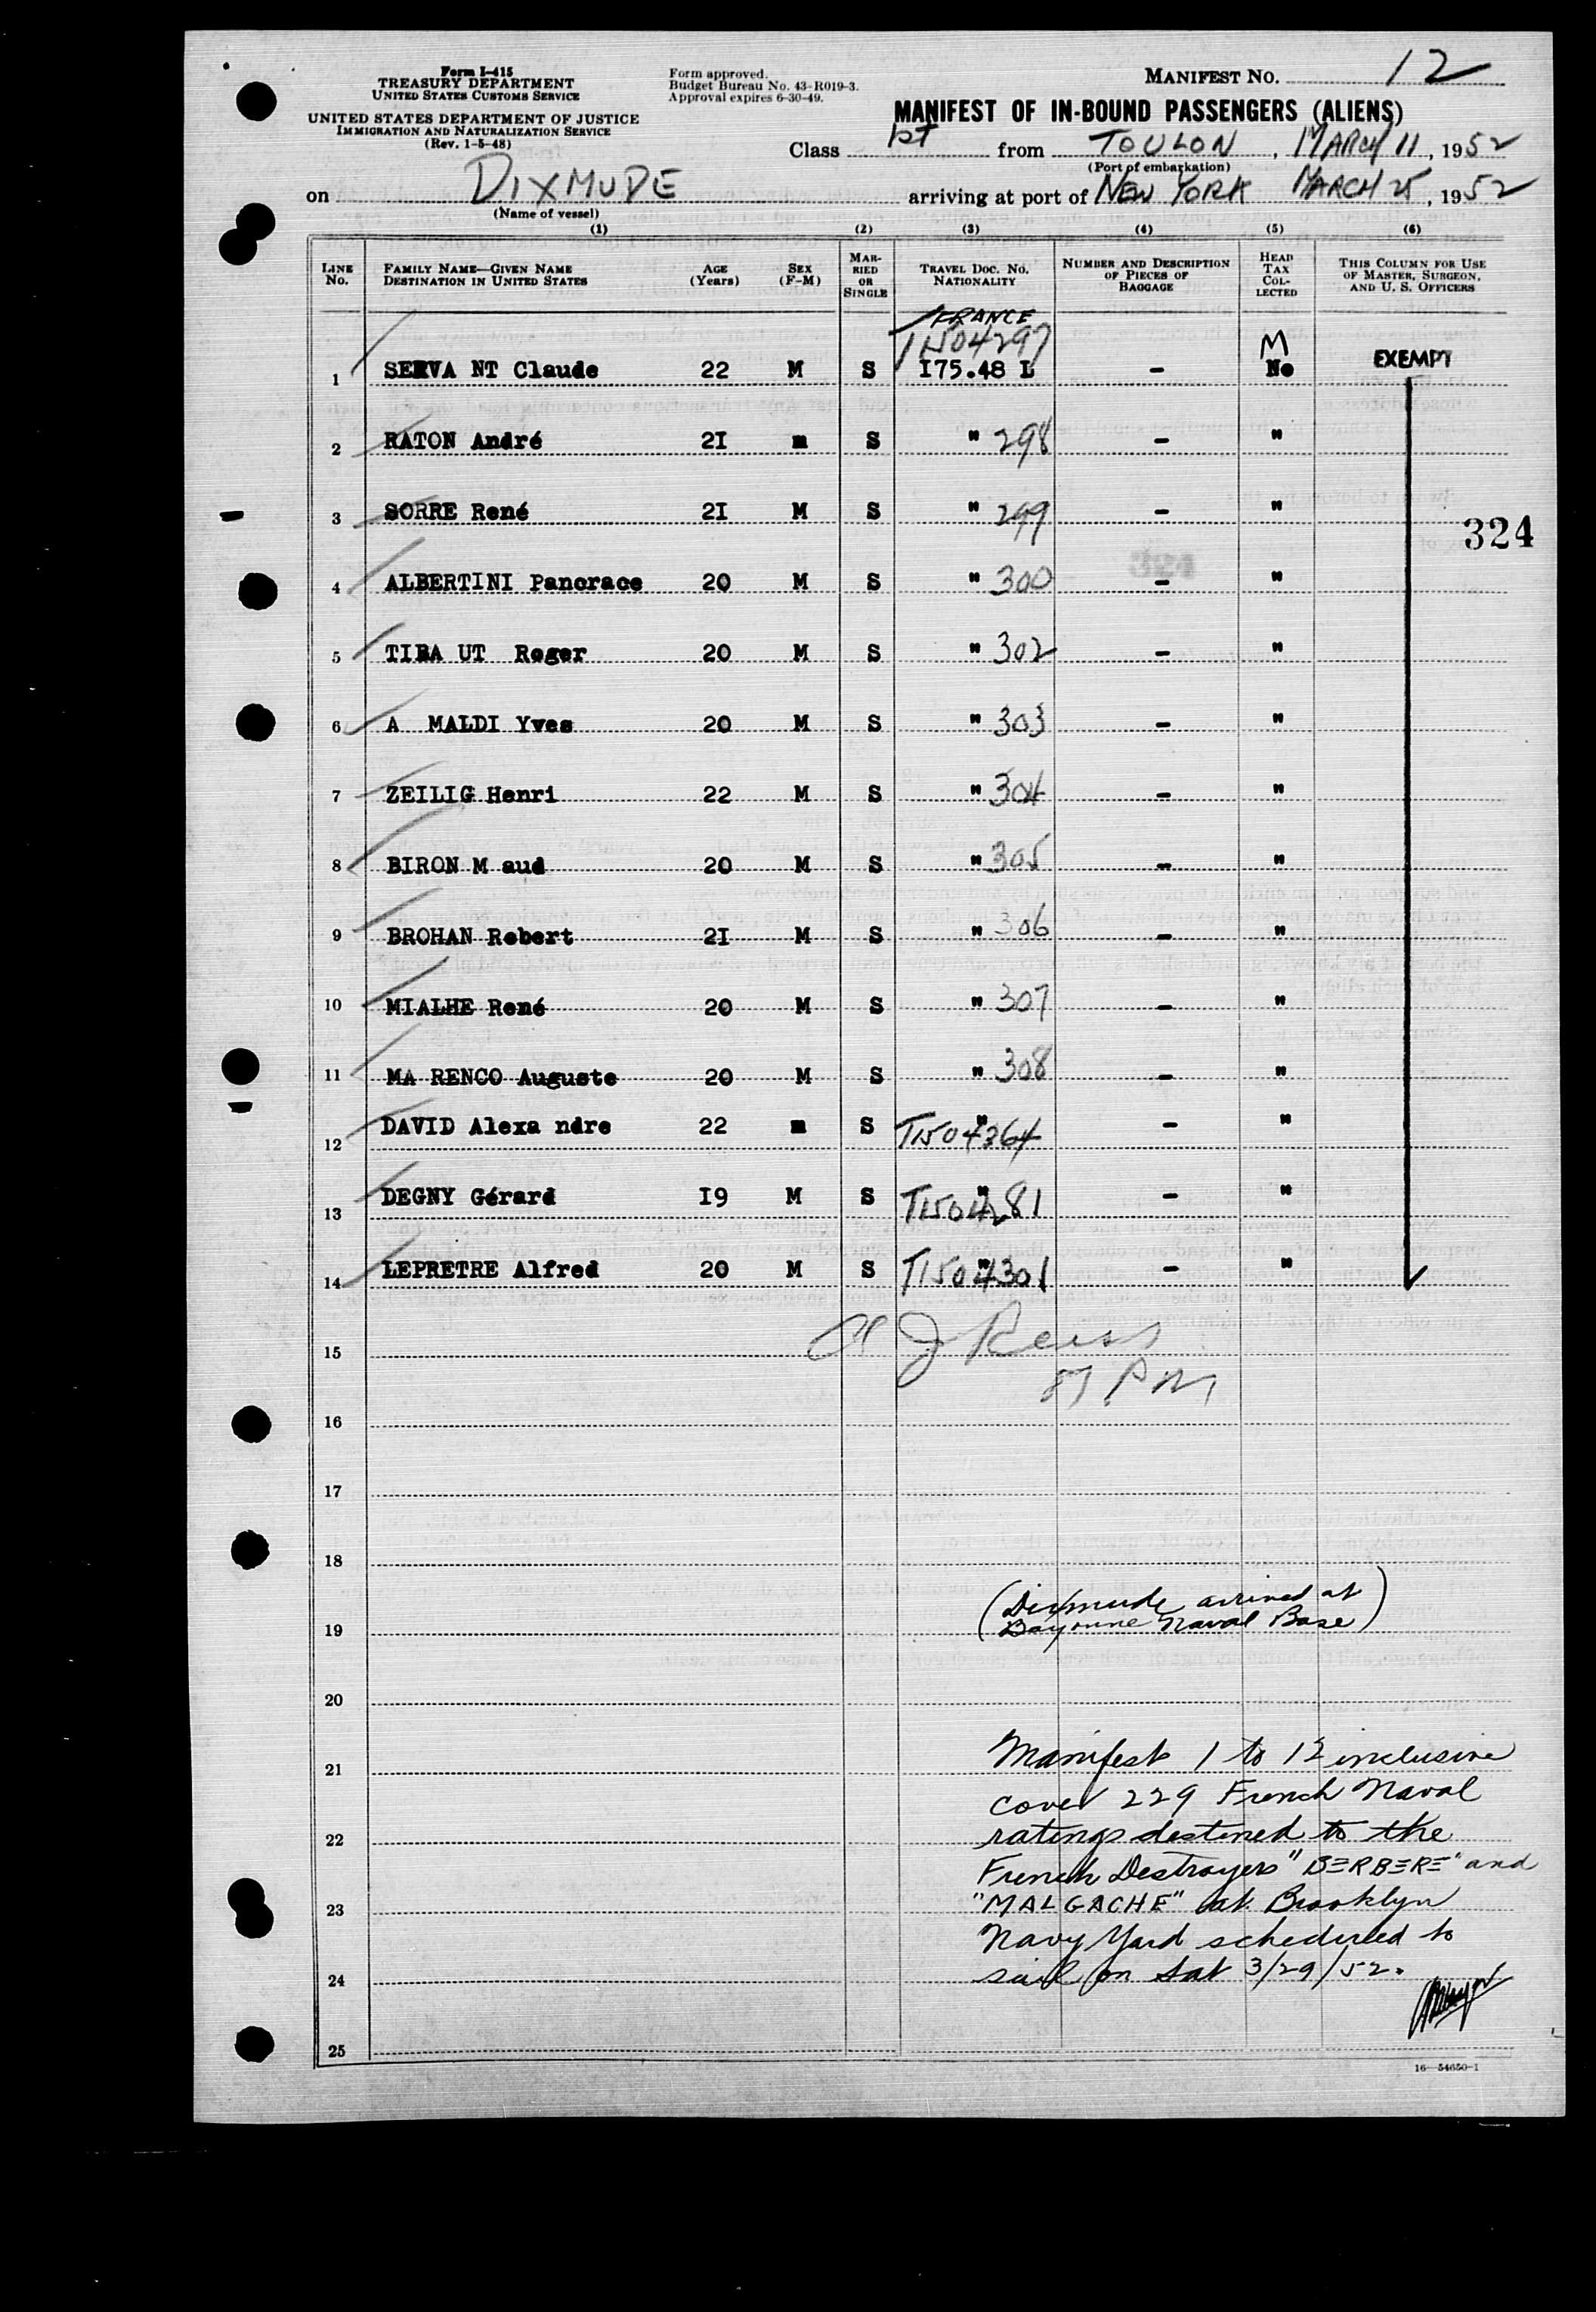 Form I-415
TREASURY DEPARTMENT
UNITED STATES CUSTOMS SERVICE
UNITED STATES DEPARTMENT OF JUSTICE
IMMIGRATION AND NATURALIZATION SERVICE
(Rev. 1-5-48)
Form approved.
Budget Bureau No. 43-R019-3.
Approval expires 6-30-49.
MANIFEST NO. 12
MANIFEST OF IN-BOUND PASSENGERS (ALIENS)
Class 1st from TOULON, MARCH 11, 1952
(Port of embarkation)
on DIXMUDE arriving at port of NEW YORK MARCH 25, 1952
(Name of vessel)
(1) (2) (3) (4) (5) (6)
LINE NO. FAMILY NAME—GIVEN NAME DESTINATION IN UNITED STATES AGE (Years) SEX (F-M) MARRIED OR SINGLE TRAVEL DOC. NO. NATIONALITY NUMBER AND DESCRIPTION OF PIECES OF BAGGAGE HEAD TAX COLLECTED THIS COLUMN FOR USE OF MASTER, SURGEON, AND U. S. OFFICERS
FRANCE
T1504297 M
1 SERVA NT Claude 22 M S I75.48 L - No EXEMPT
2 RATON André 2I m S " 298 - "
3 SORRE René 2I M S " 299 - "
324
4 ALBERTINI Pancrace 20 M S " 300 - "
5 TIBA UT Roger 20 M S " 302 - "
6 A MALDI Yves 20 M S " 303 - "
7 ZEILIG Henri 22 M S " 304 - "
8 BIRON M aud 20 M S " 305 - "
9 BROHAN Robert 2I M S " 306 - "
10 MIALHE René 20 M S " 307 - "
11 MA RENCO Auguste 20 M S " 308 - "
12 DAVID Alexa ndre 22 m S " T1504364 - "
13 DEGNY Gérard I9 M S " T1504281 - "
14 LEPRETRE Alfred 20 M S " T1504301 - "
15 J Reiss
PM
16
17
18
(Dixmude arrived at
19 Bayonne Naval Base)
20
21 Manifest 1 to 12 inclusive
cover 229 French Naval
22 ratings destined to the
French Destroyers "BERBERE" and
23 "MALGACHE" at Brooklyn
Navy Yard scheduled to
24 sail on Sat 3/29/52.
25
16—54650-1